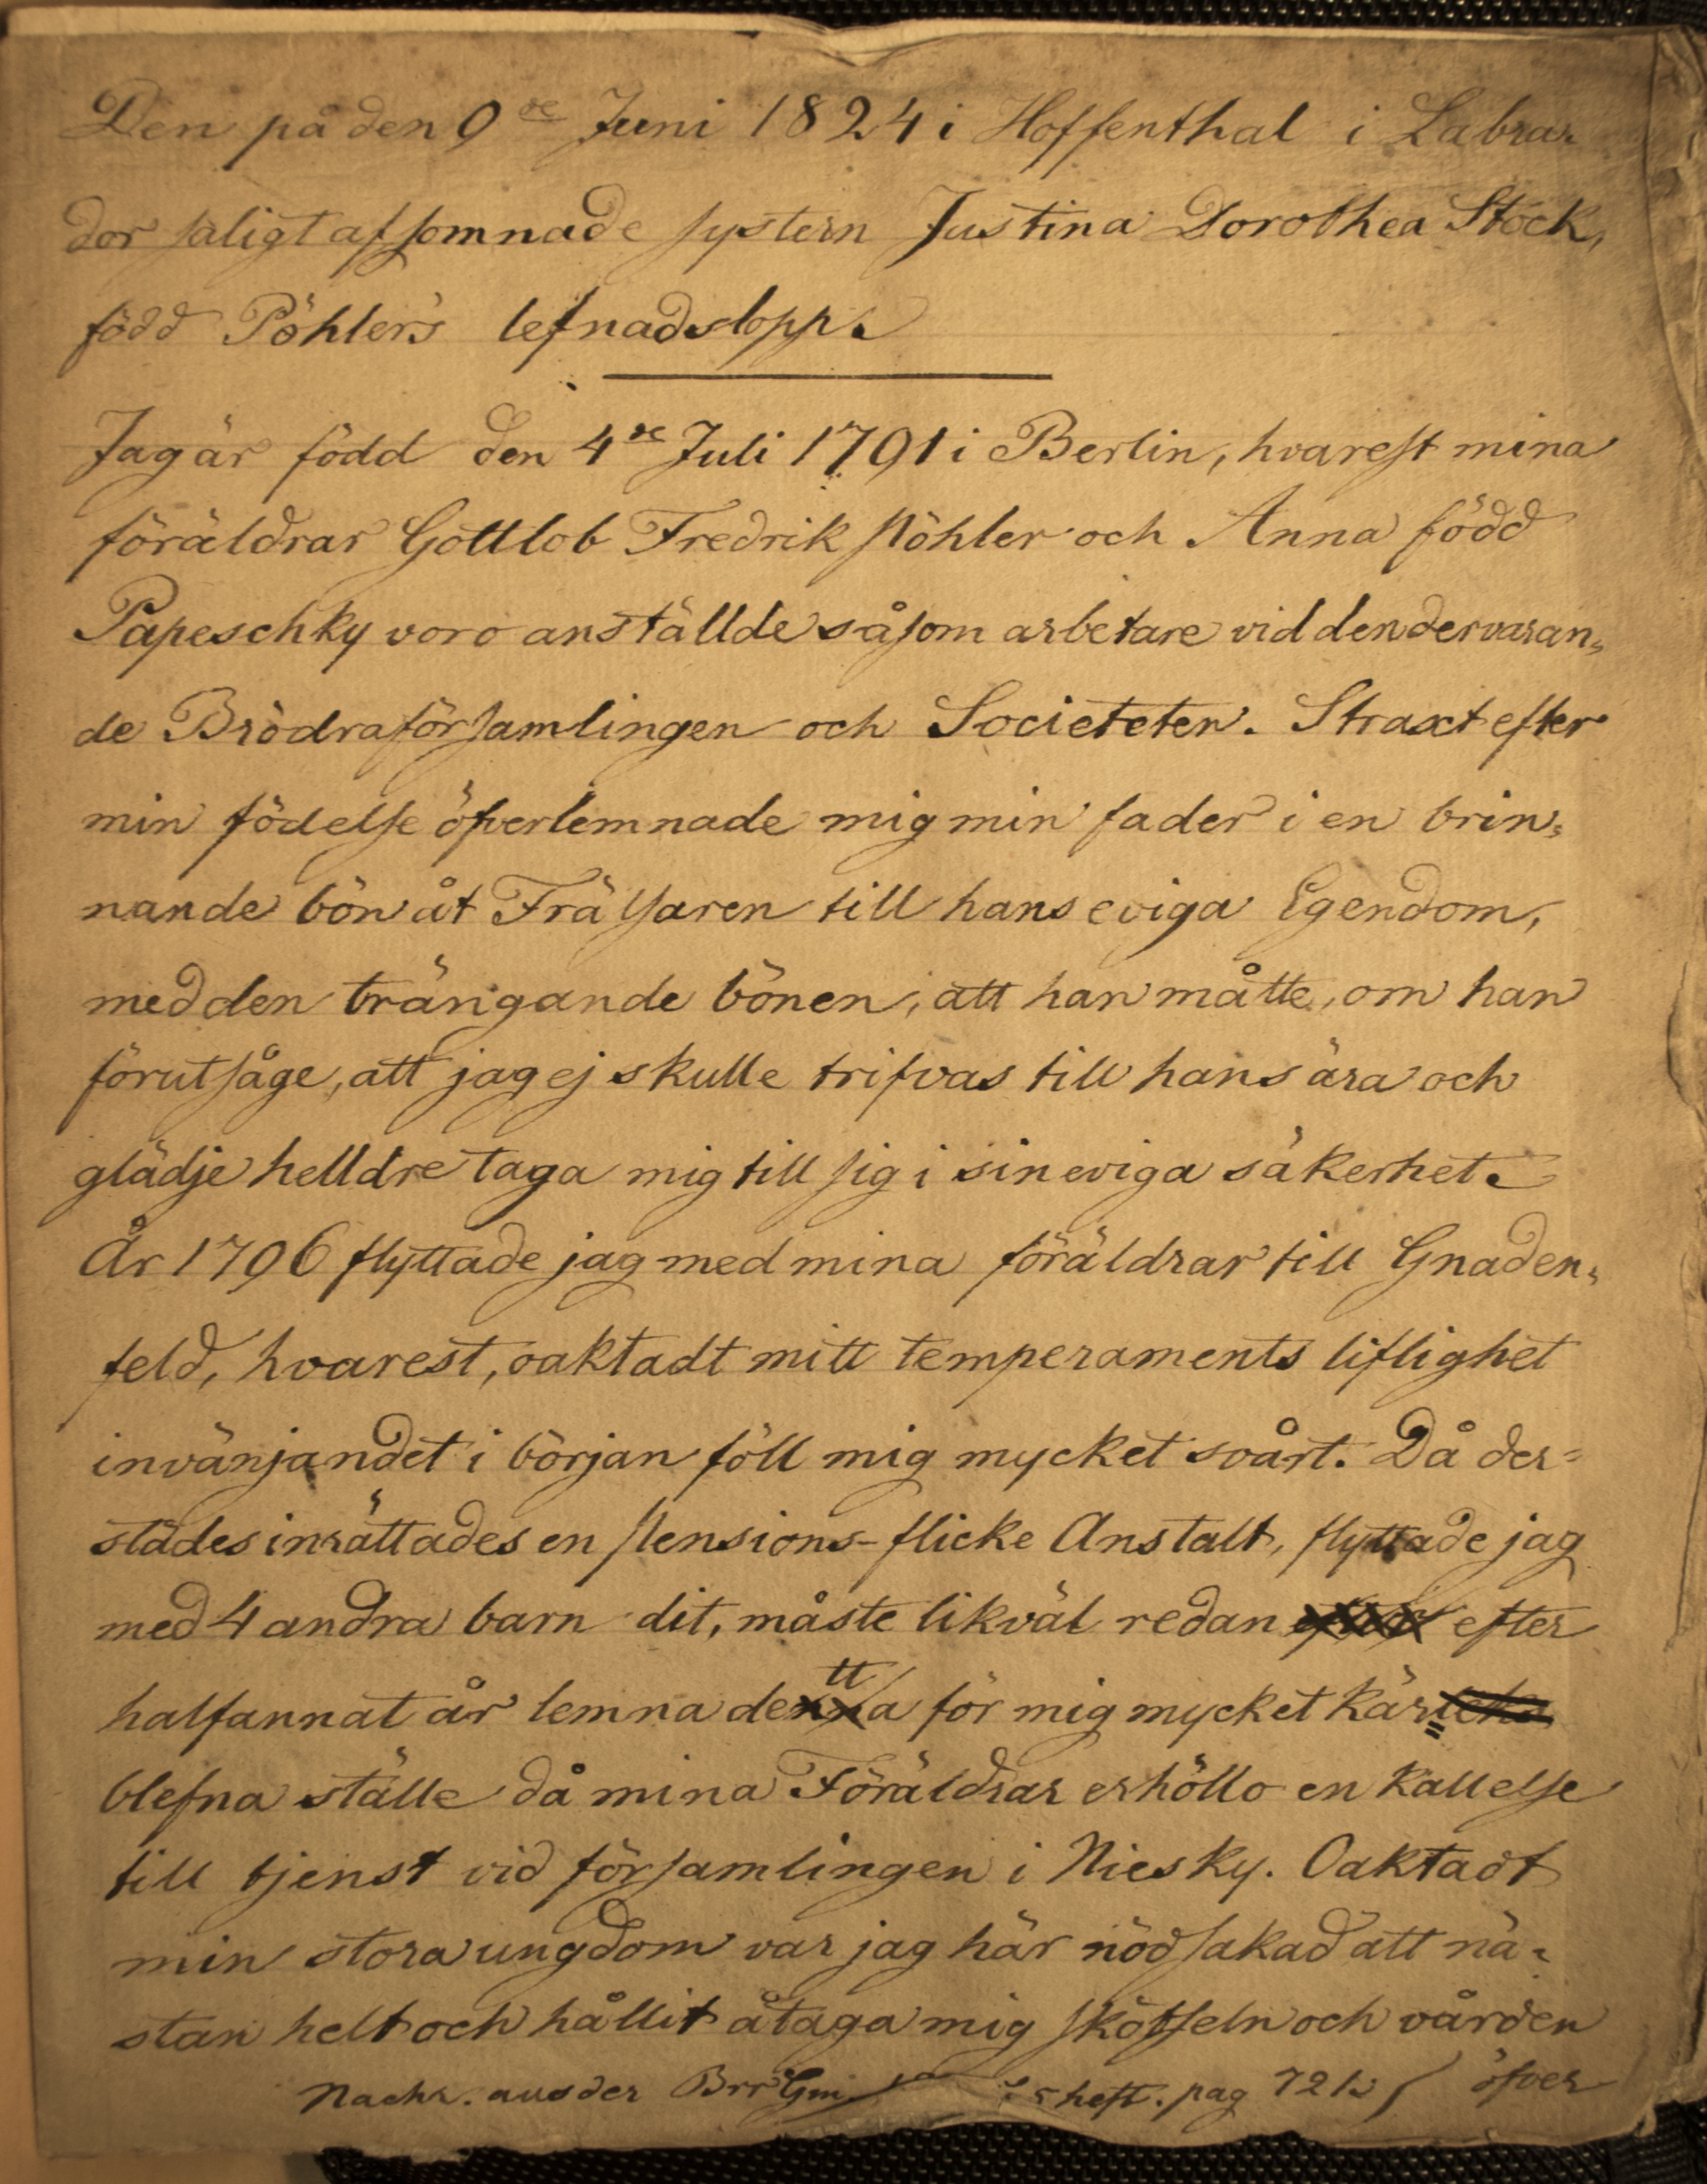 Den på den 9de Juni 1824 i Hoffenthal i Labra-
dor saligt afsomnade systern Justina Dorothea Stock,
född Pöhler's lefnadslopp.
Jag är född den 4de Juli 1791 i Berlin, hvarest mina
föräldrar Gottlob Fredrik Pöhler och Anna född
Papeschky voro anställde såsom arbetare vid den dervaran-
de Brödraförsamlingen och Societeten. Straxt efter
min födelse öfverlemnade mig min fader i en brin-
nande bön åt Frälsaren till hans eviga Egendom,
med den trängande bönen, att han måtte, om han
förutsåge, att jag ej skulle trifvas till hans ära och
glädje helldre taga mig till sig i sin eviga säkerhet.
År 1796 flyttade jag med mina föräldrar till Gnaden-
feld, hvarest, oaktadt mitt temperaments liflighet
invänjandet i början föll mig mycket svårt. Då der-
städes inrättades en Pensions-flicke Anstalt, flyttade jag
med 4 andra barn dit, måste likväl redan efter
halfannat år lemna detta för mig mycket kär-
blefna ställe då mina Föräldrar erhöllo en kallelse
till tjenst vid församlingen i Niesky. Oaktadt
min stora ungdom var jag här nödsakad att nä-
stan helt och hållit åtaga mig skötseln och vården
Nachr. aus der Brr Gm heft. pag 721 öfver